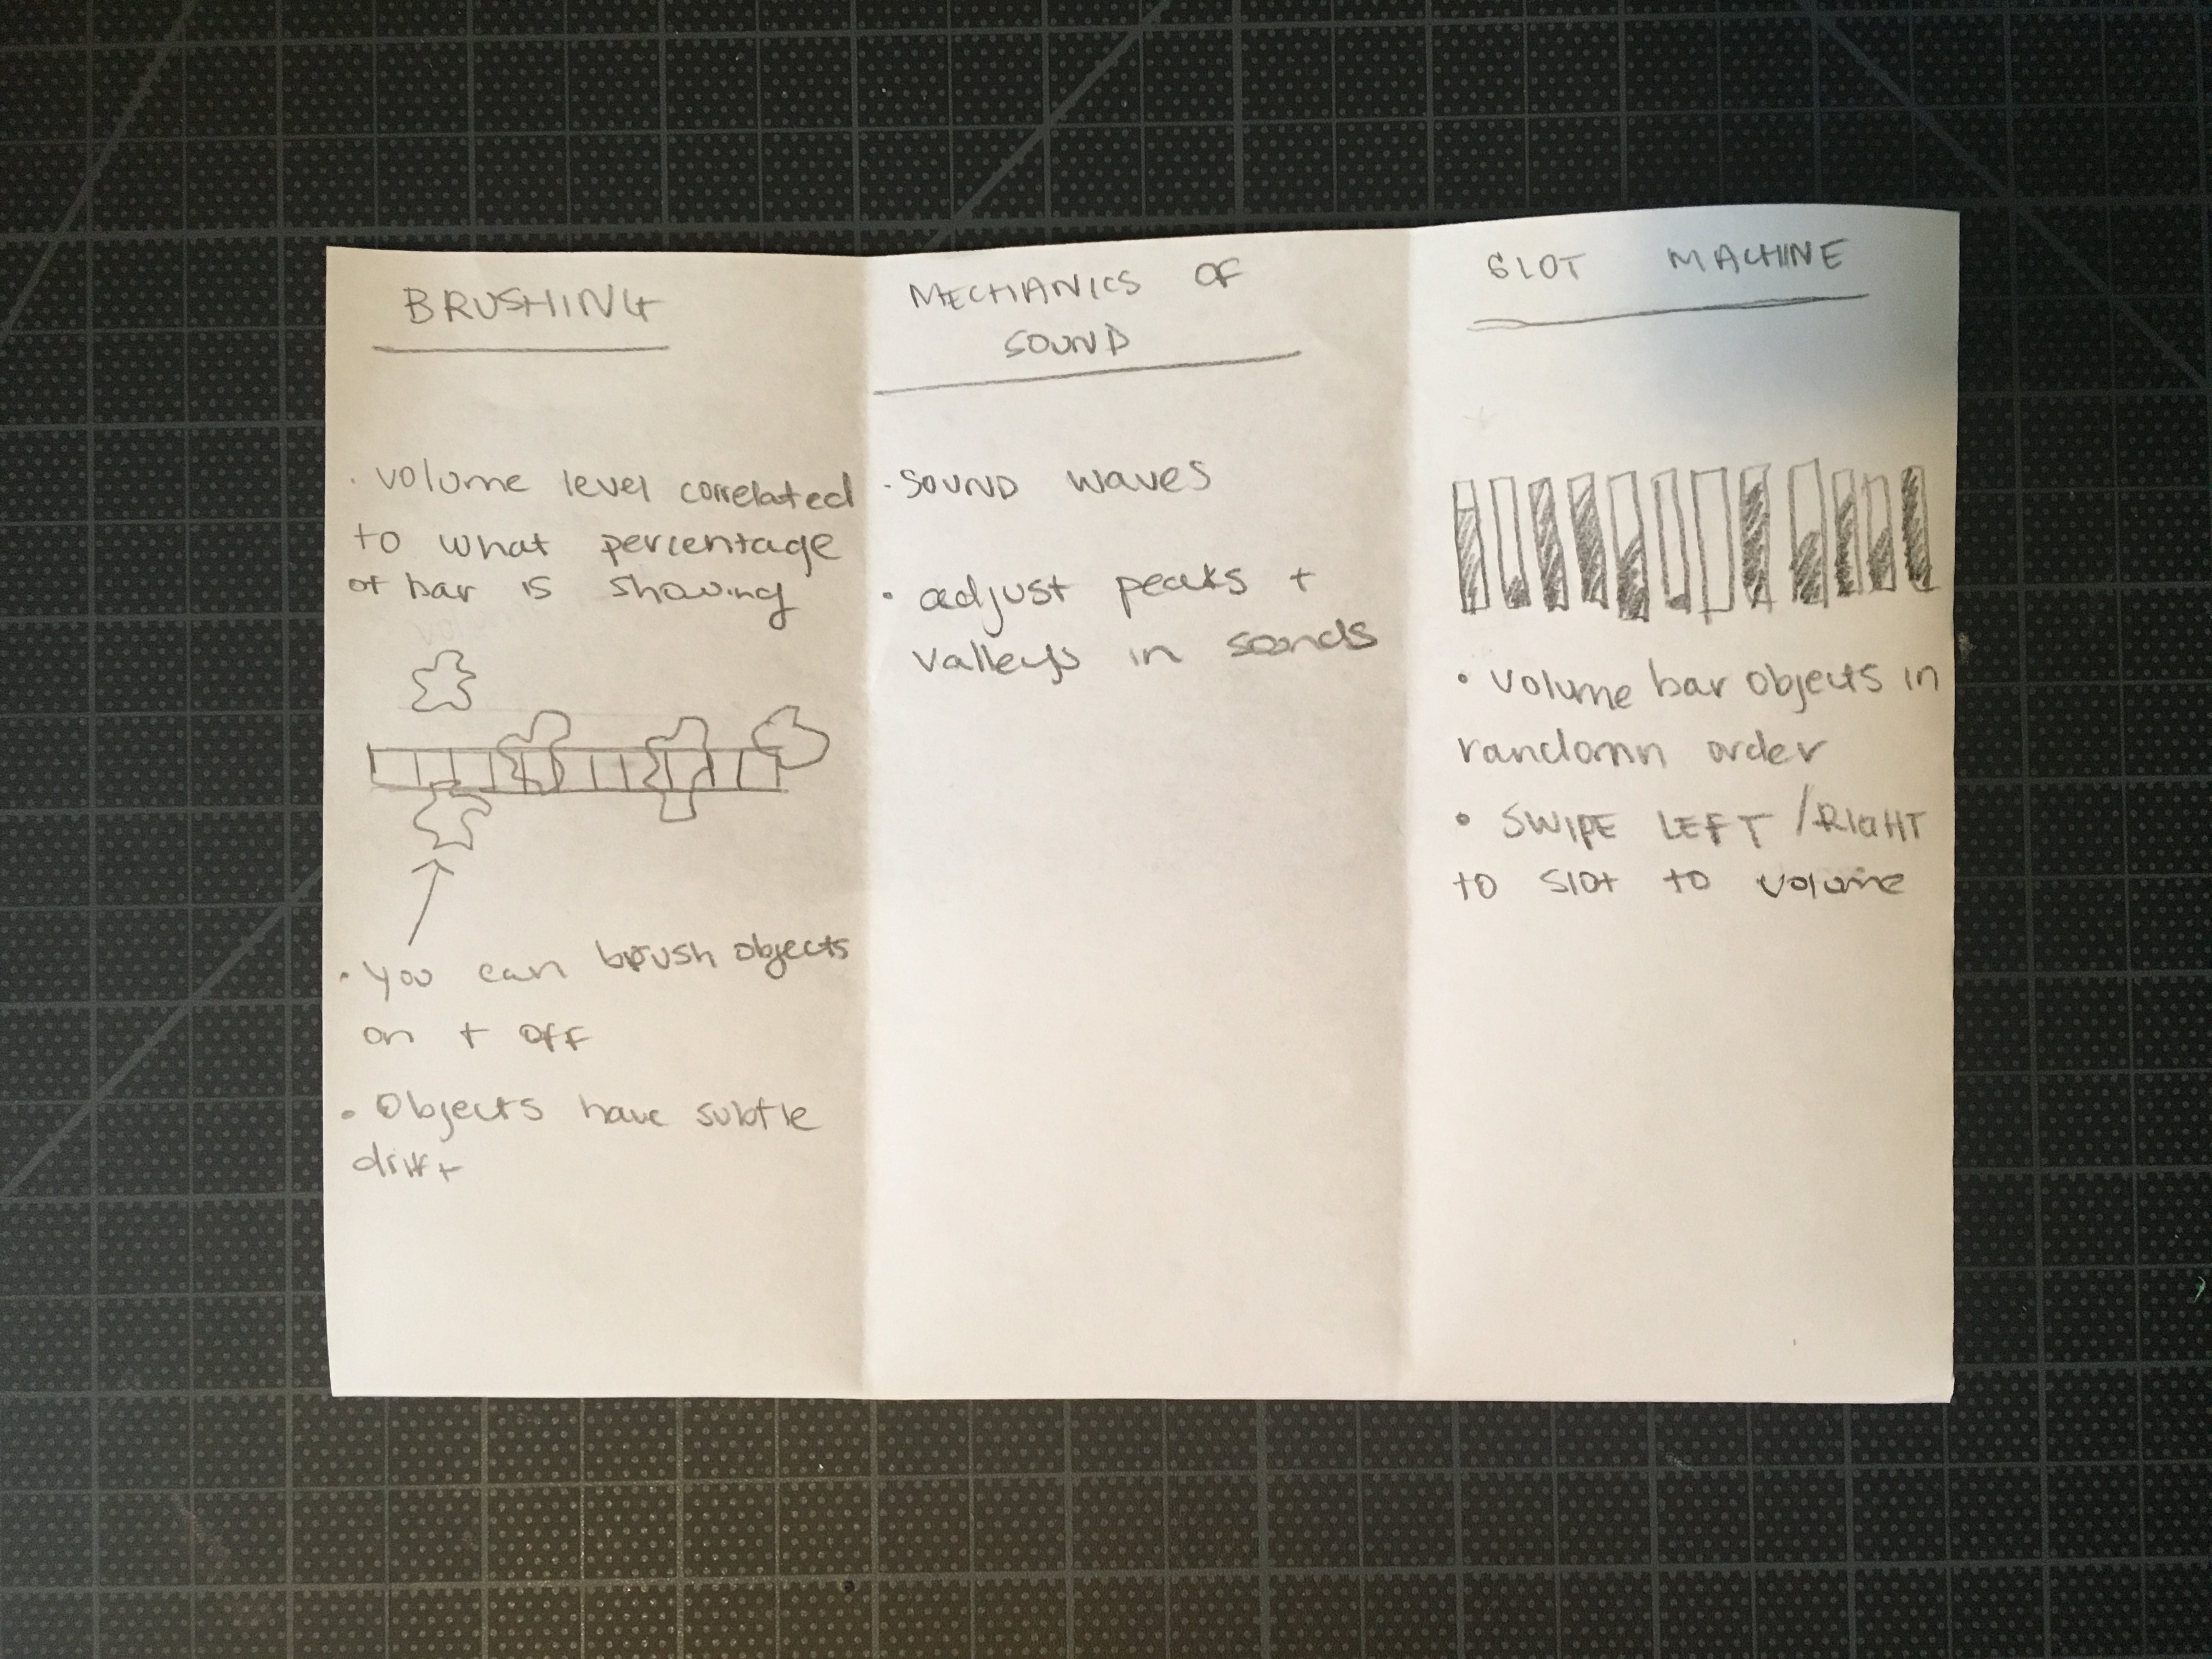 BRUSHING
· volume level correlated
to what percentage
of bar is showing
· you can brush objects
on + off
· objects have subtle
drift
MECHANICS OF
SOUND
· SOUND WAVES
· adjust peaks +
valleys in sounds
SLOT MACHINE
· volume bar objects in
random order
· SWIPE LEFT / RIGHT
to slot to volume